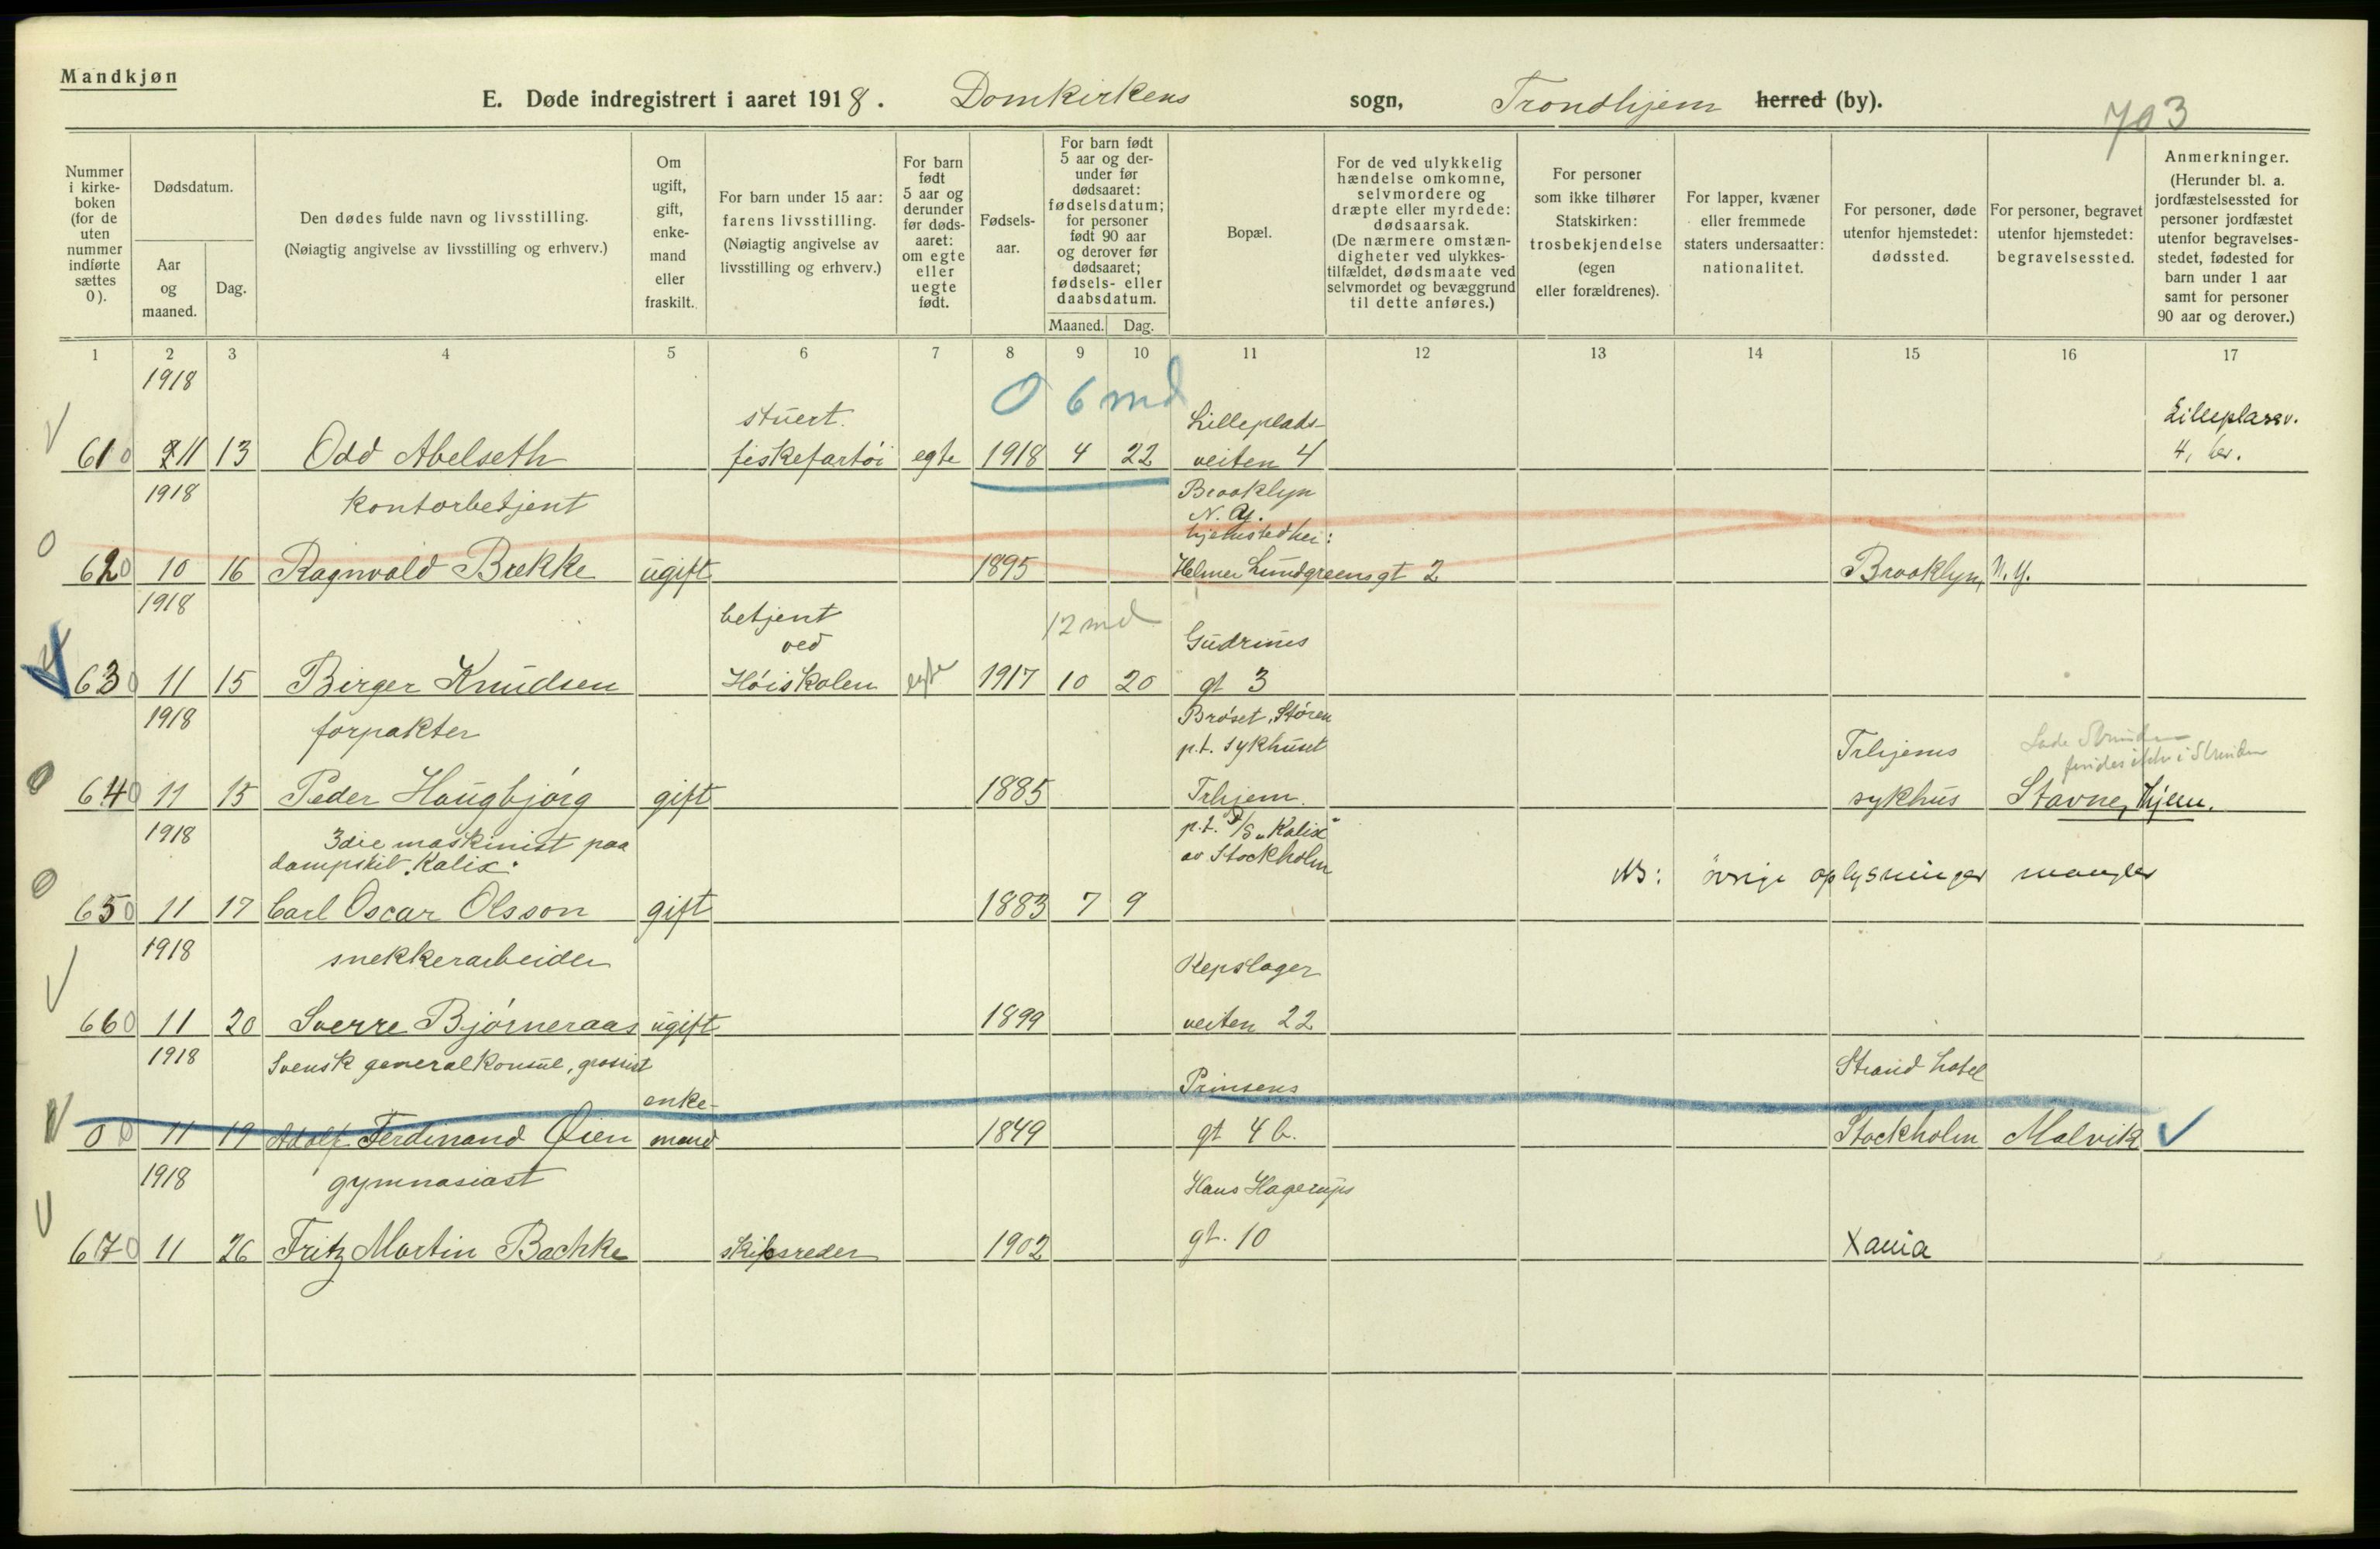 Mandkjøn
E. Døde indregistrert i aaret 1918. Domkirkens sogn, Trondhjem herred (by).
703
Nummer i kirke-boken (for de uten nummer indførte sættes 0).
Dødsdatum.
Aar og maaned.
Dag.
Den dødes fulde navn og livsstilling.
(Nøiagtig angivelse av livsstilling og erhverv.)
Om ugift, gift, enke-mand eller fraskilt.
For barn under 15 aar: farens livsstilling.
(Nøiagtig angivelse av livsstilling og erhverv.)
For barn født 5 aar og derunder før døds-aaret: om egte eller uegte født.
Fødsels-aar.
For barn født 5 aar og der-under før dødsaaret: fødselsdatum; for personer født 90 aar og derover før dødsaaret; fødsels- eller daabsdatum.
Maaned. Dag.
Bopæl.
For de ved ulykkelig hændelse omkomne, selvmordere og dræpte eller myrdede: dødsaarsak.
(De nærmere omstæn-digheter ved ulykkes-tilfældet, dødsmaate ved selvmordet og bevæggrund til dette anføres.)
For personer som ikke tilhører Statskirken: trosbekjendelse (egen eller forældrenes).
For lapper, kvæner eller fremmede staters undersaatter: nationalitet.
For personer, døde utenfor hjemstedet: dødssted.
For personer, begravet utenfor hjemstedet: begravelsessted.
Anmerkninger.
(Herunder bl. a. jordfæstelsessted for personer jordfæstet utenfor begravelses-stedet, fødested for barn under 1 aar samt for personer 90 aar og derover.)
1 2 3 4 5 6 7 8 9 10 11 12 13 14 15 16 17
1918
0 6 md
stuert. Lilleplads- Lilleplassv.
610 11 13 Odd Abelseth fiskefartøi egte 1918 4 22 veiten 4 4, her.
1918 kontorbetjent Brooklyn
N. Y.
hjemsted her:
620 10 16 Ragnvald Brekke ugift 1895 Helmer Lundgreens gt 2 Brooklyn, N. Y.
1918 betjent 12 md
ved Gudruns
630 11 15 Birger Knudsen Høiskolen egte 1917 10 20 gt 3
1918 forpakter Brøset, Støren
p.t. sykhuset Trhjems Lade Strinden
findes ikke i Strinden
640 11 15 Peder Haugbjørg gift 1885 Trhjem. sykhus Stavne, Thjem.
1918 3die maskinist paa p.t. D/S "Kalix"
dampskib "Kalix". av Stockholm NB: øvrige oplysninger mangler
650 11 17 Carl Oscar Olsson gift 1883 7 9
1918 snekkerarbeider Repslager
660 11 20 Sverre Bjørneraas ugift 1899 veiten 22
1918 Svensk generalkonsul, grossist Strand hotel
enke- Prinsens
0 0 11 19 Adolf Ferdinand Øien mand 1849 gt 4 b. Stockholm Malvik
1918 gymnasiast Hans Hagerups
670 11 26 Fritz Martin Bachke skibsreder 1902 gt. 10 Xania